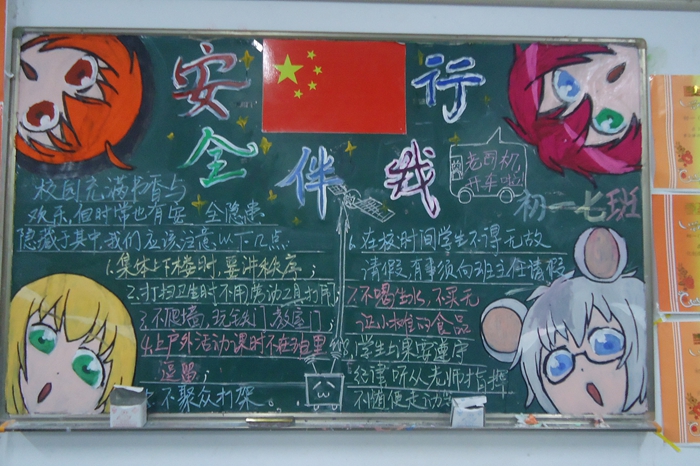 安全伴我行
老司机
开车啦
初一七班
校园充满书香与
欢乐但时常也有安全隐患
隐藏于其中,我们应该注意以下几点
1.集体上下楼时,要讲秩序;
2.打扫卫生时不用劳动工具打闹;
3.不爬墙,玩耍,门,教室门;
4.上户外活动课时不在
逗留;
5.不聚众打架。
6.在校时间学生不得无故
请假,有事须向班主任请假
7.不喝生水,不买无
证小摊的食品
8.学生上课要遵守
纪律听从老师指挥
不随便走动